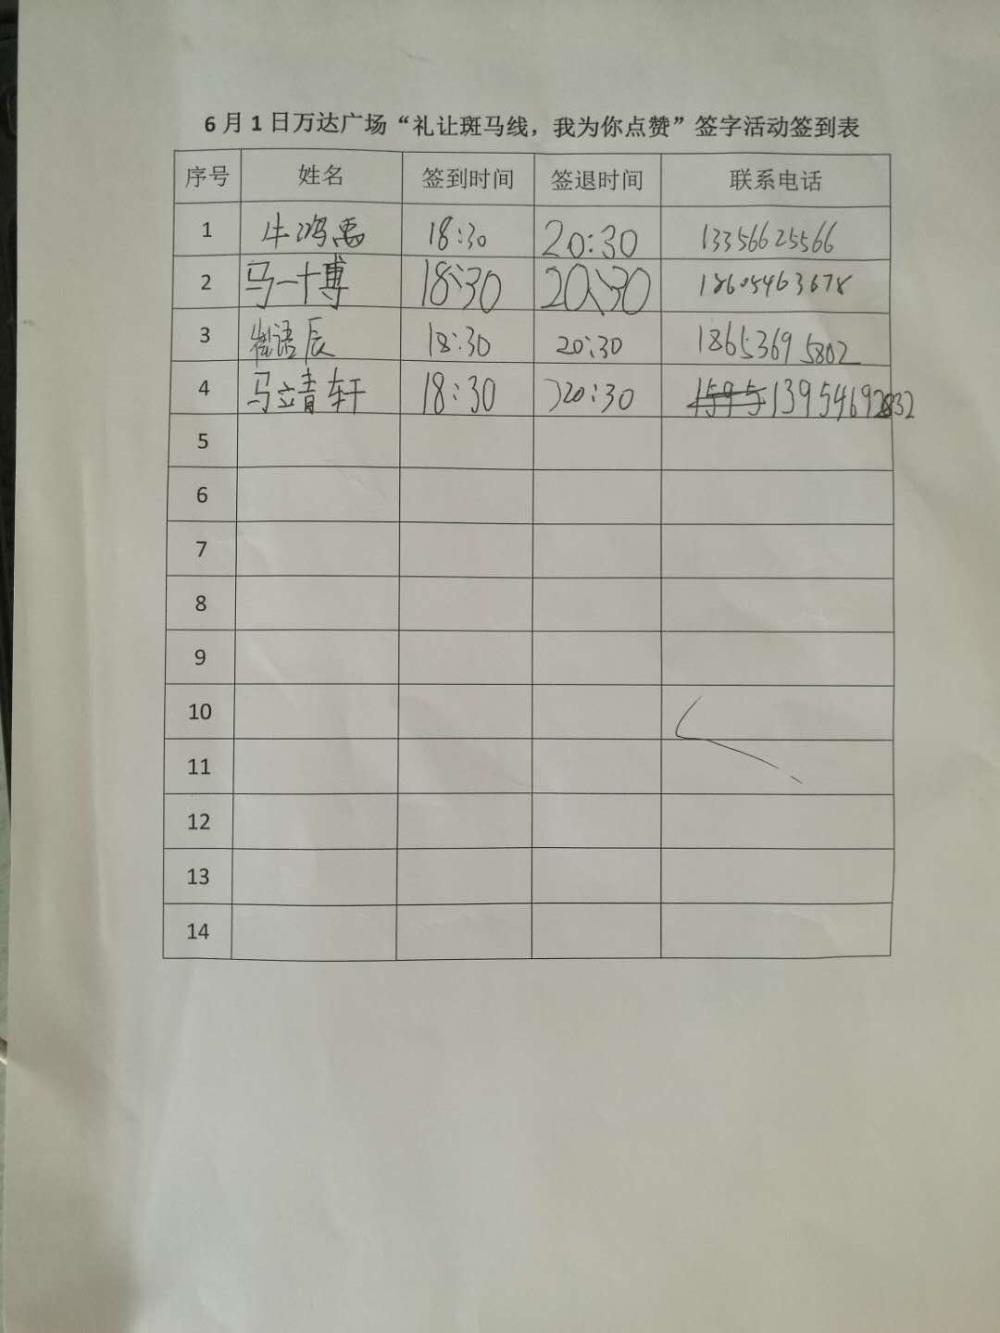 6月1日万达广场“礼让斑马线，我为你点赞”签字活动签到表
序号 姓名 签到时间 签退时间 联系电话
1 牛鸿禹 18:30 20:30 13356625566
2 马一博 18:30 20:30 18605463678
3 崔语辰 18:30 20:30 18653695802
4 马靖轩 18:30 20:30 13954692832
5
6
7
8
9
10
11
12
13
14